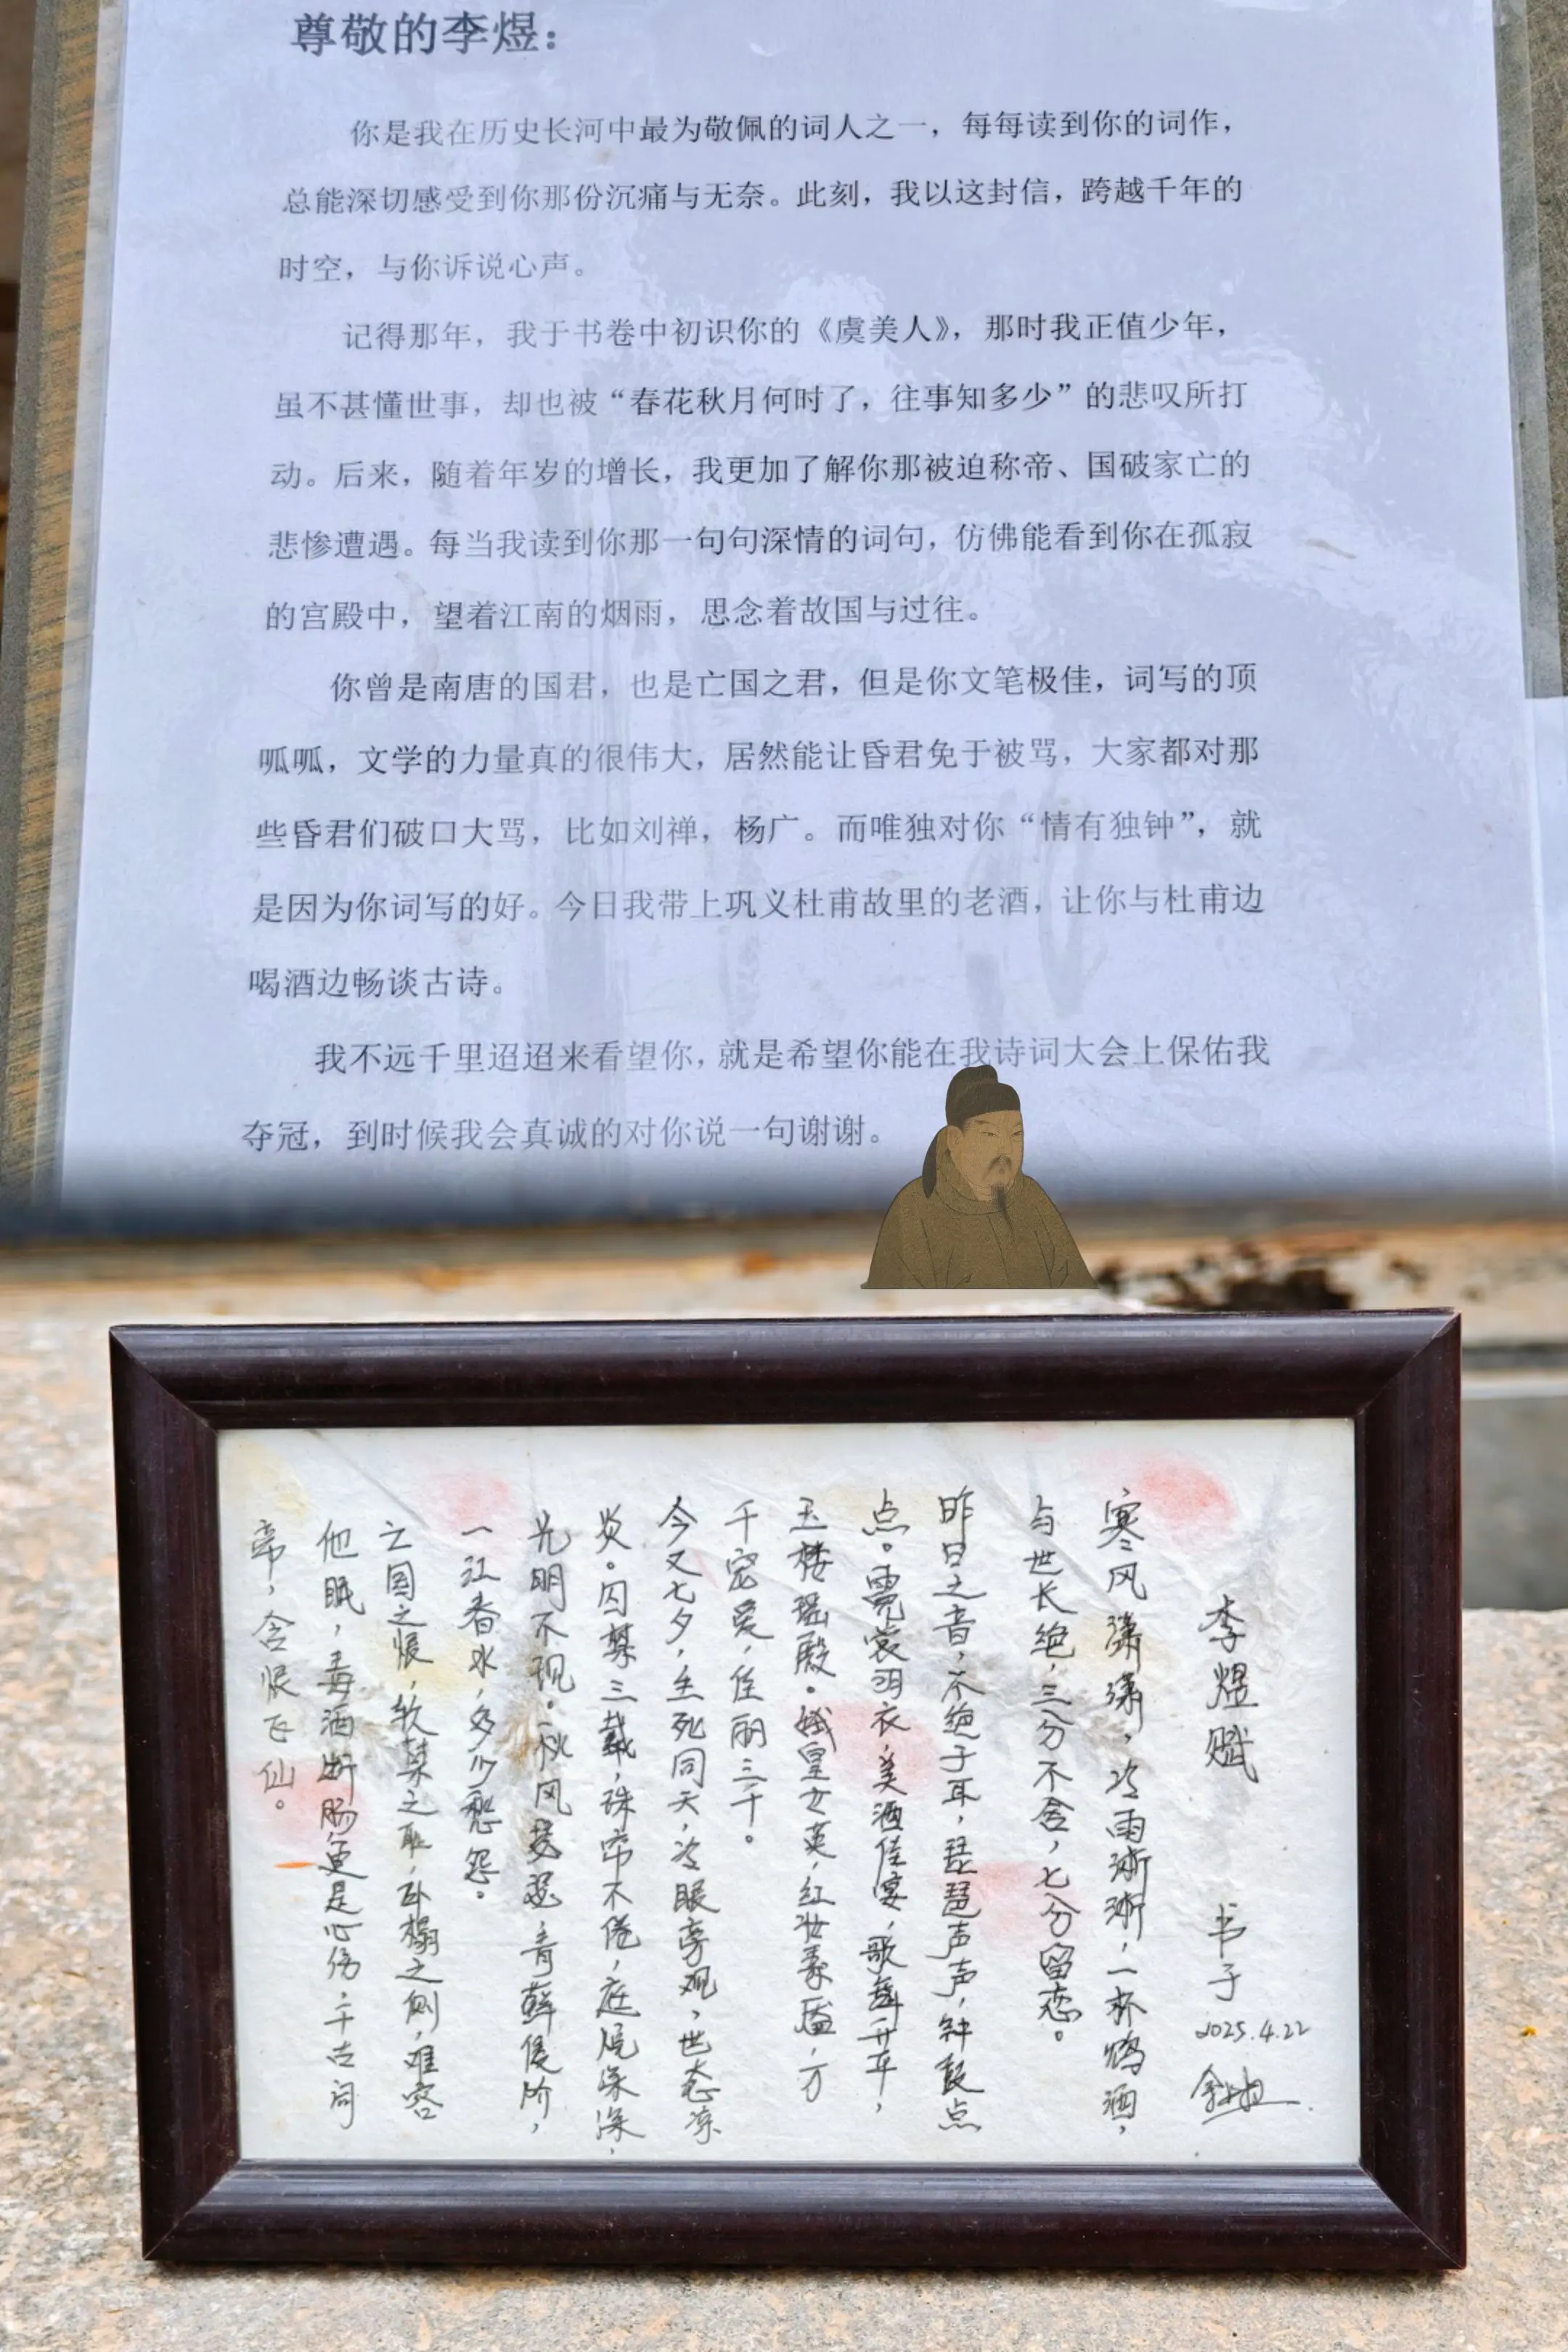 尊敬的李煜：
你是我在历史长河中最为敬佩的词人之一，每每读到你的词作，
总能深切感受到你那份沉痛与无奈。此刻，我以这封信，跨越千年的
时空，与你诉说心声。
记得那年，我于书卷中初识你的《虞美人》，那时我正值少年，
虽不甚懂世事，却也被“春花秋月何时了，往事知多少”的悲叹所打
动。后来，随着年岁的增长，我更加了解你那被迫称帝、国破家亡的
悲惨遭遇。每当我读到你那一句句深情的词句，仿佛能看到你在孤寂
的宫殿中，望着江南的烟雨，思念着故国与过往。
你曾是南唐的国君，也是亡国之君，但是你文笔极佳，词写的顶
呱呱，文学的力量真的很伟大，居然能让昏君免于被骂，大家都对那
些昏君们破口大骂，比如刘禅，杨广。而唯独对你“情有独钟”，就
是因为你词写的好。今日我带上巩义杜甫故里的老酒，让你与杜甫边
喝酒边畅谈古诗。
我不远千里迢迢来看望你，就是希望你能在我诗词大会上保佑我
夺冠，到时候我会真诚的对你说一句谢谢。
李煜赋
书于
2025.4.22
寒风潇潇，冷雨渐渐，一杯鸩酒，
与世长绝，三分不舍，七分留恋。
昨日之音，不绝于耳，琵琶声声，钟鼓点
点。霓裳羽衣，美酒佳宴，歌舞升平，
玉楼瑶殿。娥皇女英，红妆嫁，万
千宠爱，佳丽三千。
今又七夕，生死同天，冷眼旁观，世态凉
炎。囚禁三载，珠帘不倦，庭院深深，
光明不现。秋风瑟瑟，青藓侵阶，
一江春水，多少愁怨。
亡国之恨，软禁之耻，卧榻之侧，难容
他眠，毒酒断肠更是心伤，千古词
帝，含恨飞仙。